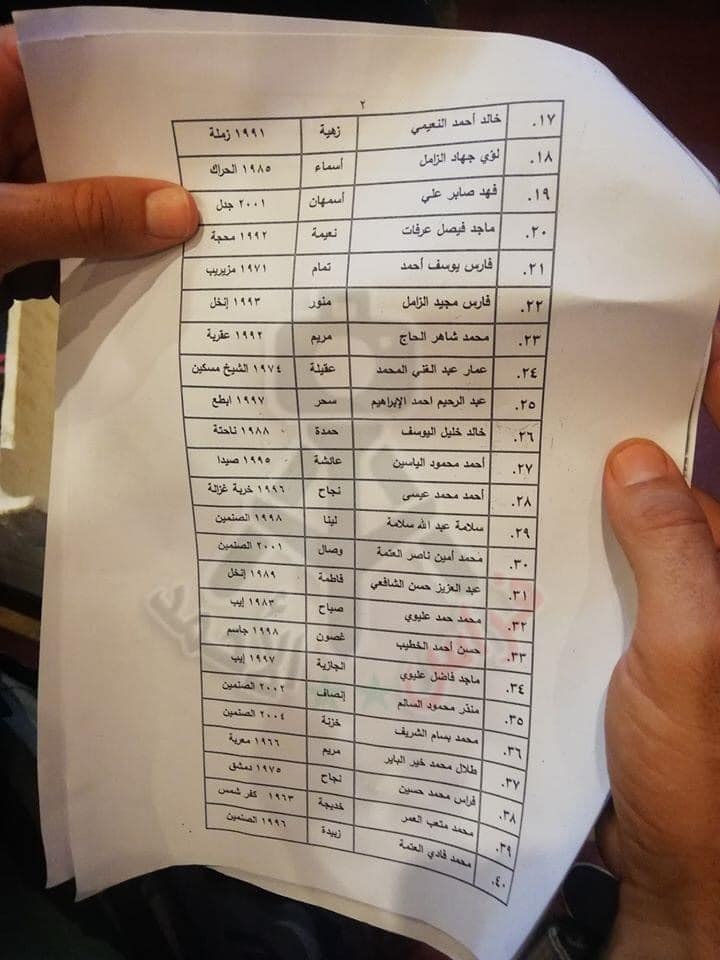 ٢
١٧. خالد أحمد النعيمي زهية ١٩٩١ زملة
١٨. لؤي جهاد الزامل أسماء ١٩٨٥ الحراك
١٩. فهد صابر علي أسمهان ٢٠٠١ جدل
٢٠. ماجد فيصل عرفات نعيمة ١٩٩٢ محجة
٢١. فارس يوسف أحمد تمام ١٩٧١ مزيريب
٢٢. فارس مجيد الزامل منور ١٩٩٣ إنخل
٢٣. محمد شاهر الحاج مريم ١٩٩٢ عقربة
٢٤. عمار عبد الغني المحمد عقيلة ١٩٧٤ الشيخ مسكين
٢٥. عبد الرحيم احمد الإبراهيم سحر ١٩٩٧ ابطع
٢٦. خالد خليل اليوسف حمدة ١٩٨٨ ناحتة
٢٧. أحمد محمود الياسين عائشة ١٩٩٥ صيدا
٢٨. أحمد محمد عيسى نجاح ١٩٩٦ خربة غزالة
٢٩. سلامة عبد الله سلامة لينا ١٩٩٨ الصنمين
٣٠. محمد أمين ناصر العتمة وصال ٢٠٠١ الصنمين
٣١. عبد العزيز حسن الشافعي فاطمة ١٩٨٩ إنخل
٣٢. محمد حمد عليوي صباح ١٩٨٣ إيب
٣٣. حسن أحمد الخطيب غصون ١٩٩٨ جاسم
٣٤. ماجد فاضل عليوي الجازية ١٩٩٧ إيب
٣٥. منذر محمود السالم إنصاف ٢٠٠٢ الصنمين
٣٦. محمد بسام الشريف خزنة ٢٠٠٤ الصنمين
٣٧. طلال محمد خير البابر مريم ١٩٦٦ معربة
٣٨. فراس محمد حسين نجاح ١٩٧٥ دمشق
٣٩. محمد متعب العمر خديجة ١٩٦٣ كفر شمس
٤٠. محمد فادي العتمة زبيدة ١٩٩٦ الصنمين